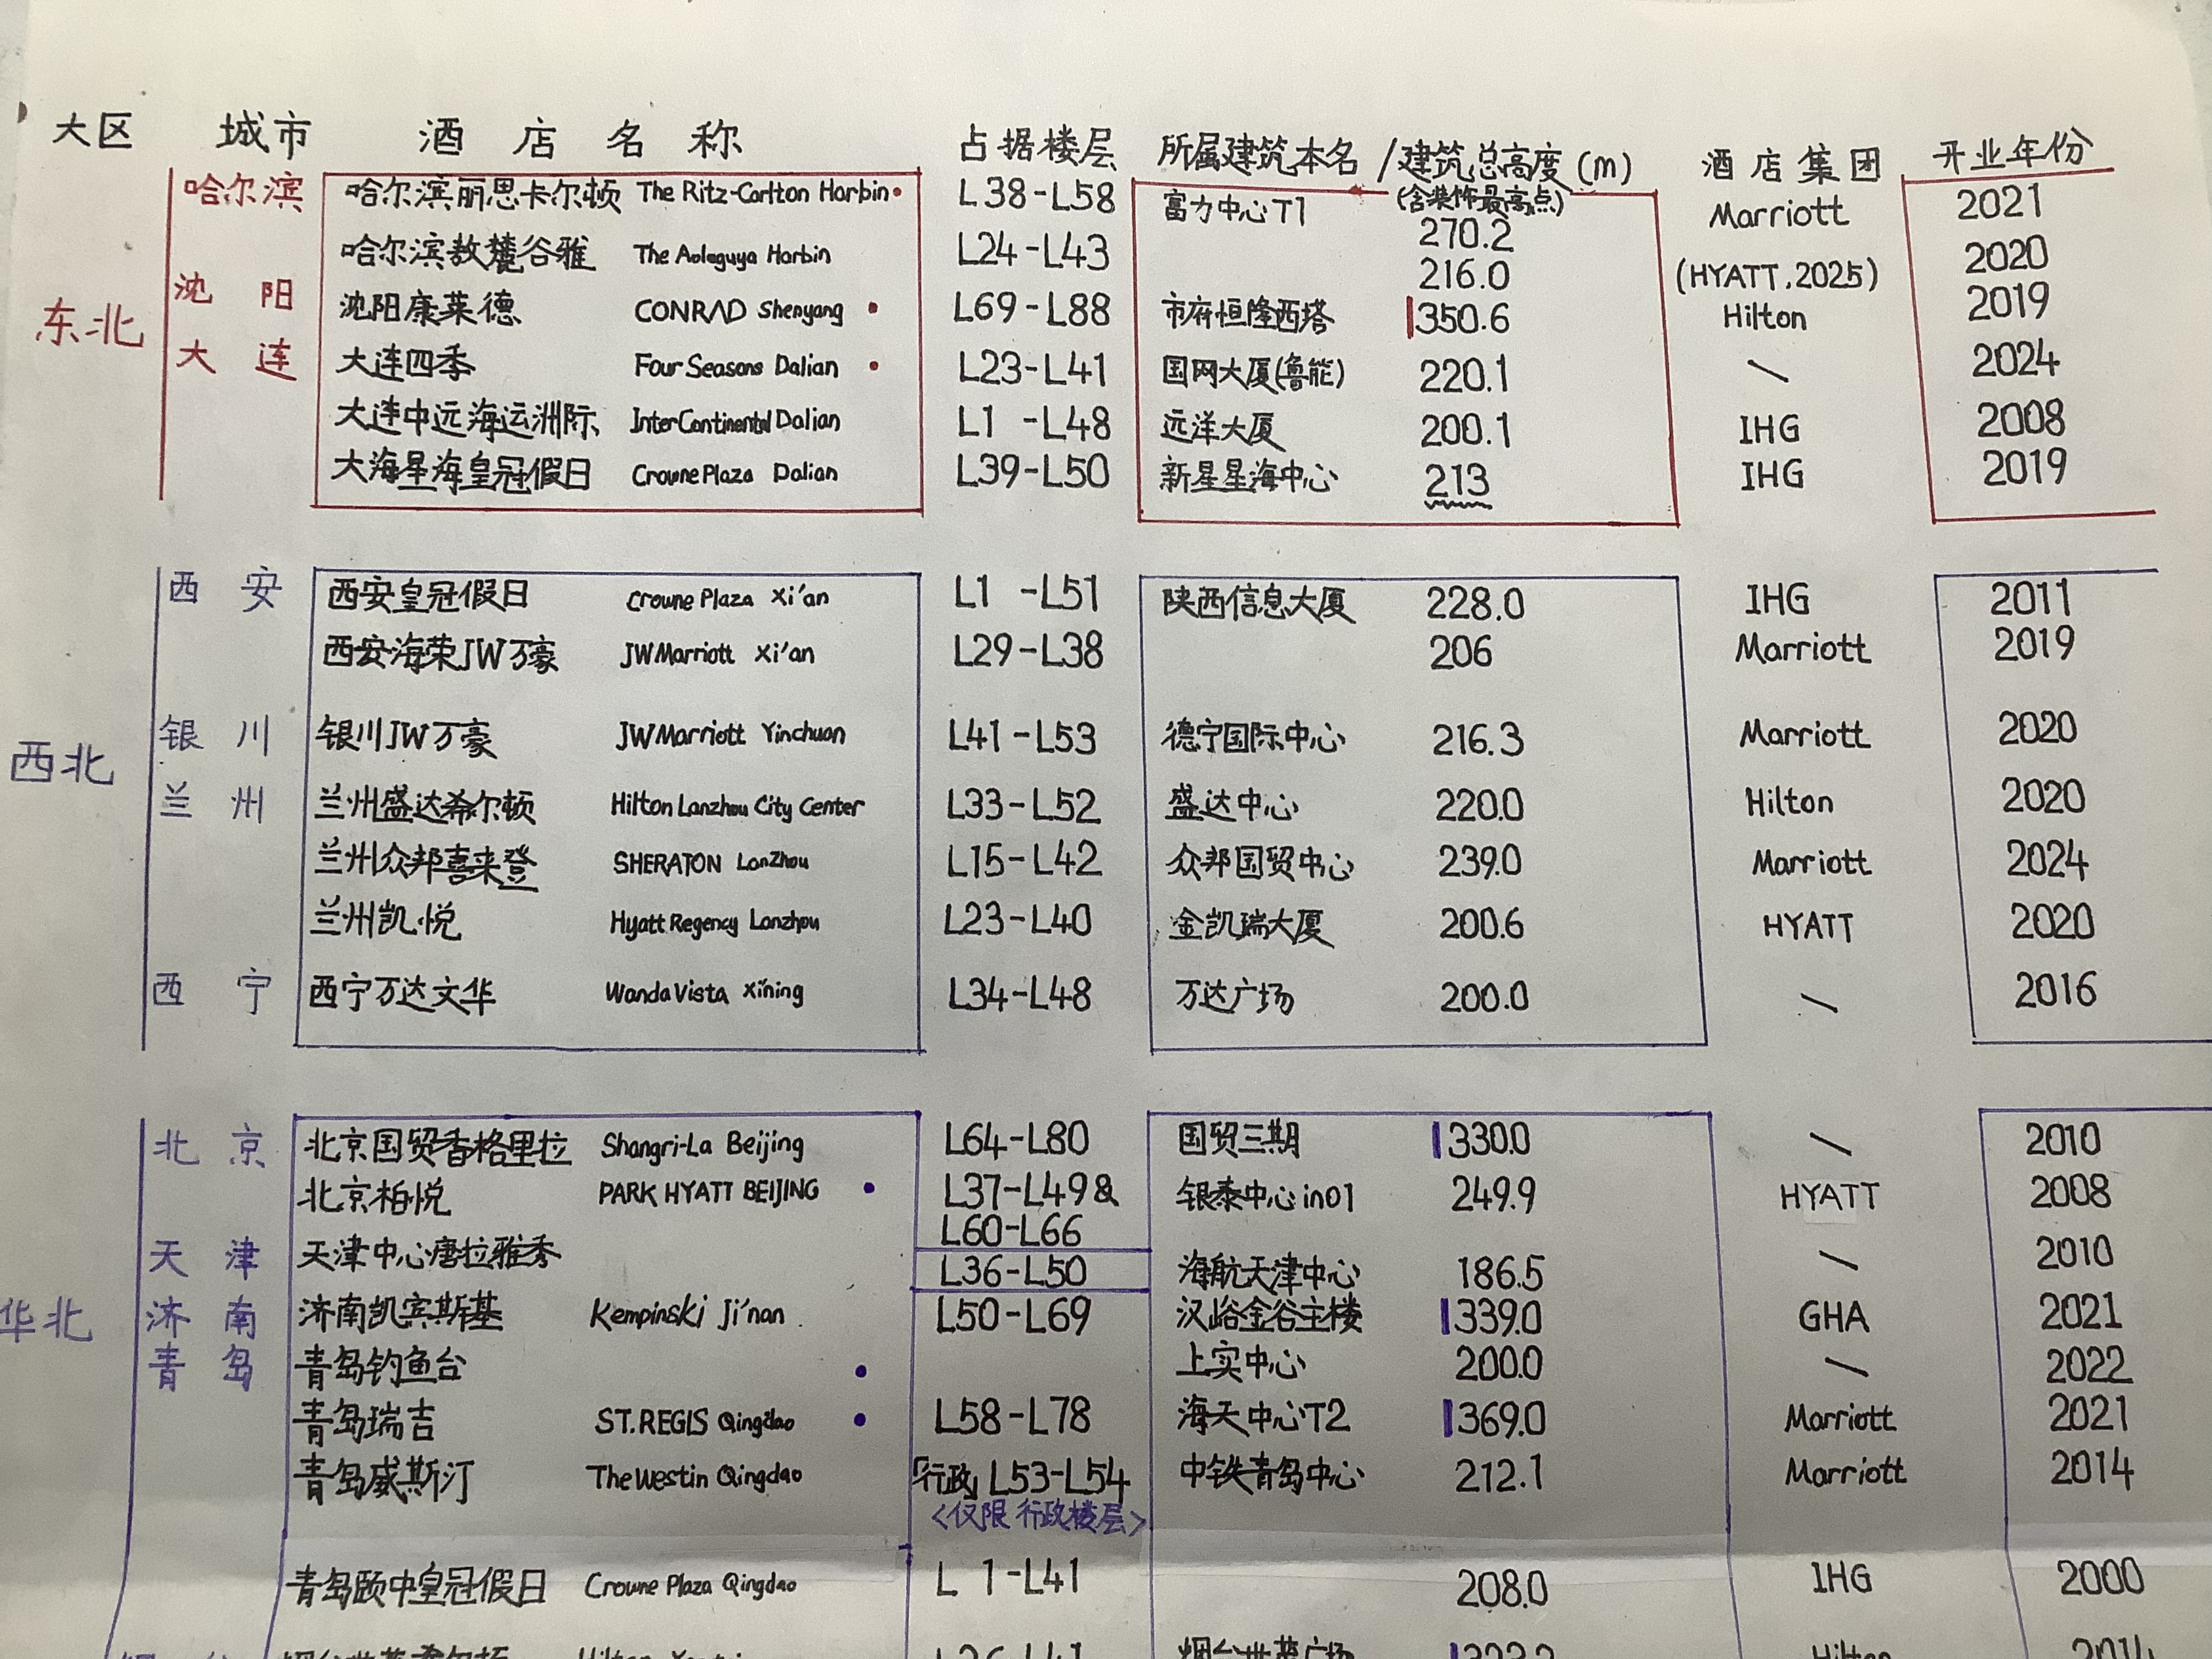 大区 城市 酒店名称 占据楼层 所属建筑本名 /建筑总高度(m) 酒店集团 开业年份
(含装饰最高点)
哈尔滨 哈尔滨丽思卡尔顿 The Ritz-Carlton Harbin• L38-L58 富力中心T1 270.2 Marriott 2021
哈尔滨敖麓谷雅 The Aoleguya Harbin L24-L43 216.0 (HYATT,2025) 2020
东北
沈阳 沈阳康莱德 CONRAD Shenyang • L69-L88 市府恒隆西塔 350.6 Hilton 2019
大连 大连四季 Four Seasons Dalian • L23-L41 国网大厦(鲁能) 220.1 \ 2024
大连中远海运洲际 InterContinental Dalian L1-L48 远洋大厦 200.1 IHG 2008
大海星海皇冠假日 Crowne Plaza Dalian L39-L50 新星星海中心 213 IHG 2019
西安 西安皇冠假日 Crowne Plaza Xi'an L1-L51 陕西信息大厦 228.0 IHG 2011
西安海荣JW万豪 JW Marriott Xi'an L29-L38 206 Marriott 2019
西北
银川 银川JW万豪 JW Marriott Yinchuan L41-L53 德宁国际中心 216.3 Marriott 2020
兰州 兰州盛达希尔顿 Hilton Lanzhou City Center L33-L52 盛达中心 220.0 Hilton 2020
兰州众邦喜来登 SHERATON LanZhou L15-L42 众邦国贸中心 239.0 Marriott 2024
兰州凯悦 Hyatt Regency Lanzhou L23-L40 金凯瑞大厦 200.6 HYATT 2020
西宁 西宁万达文华 Wanda Vista Xining L34-L48 万达广场 200.0 \ 2016
北京 北京国贸香格里拉 Shangri-La Beijing L64-L80 国贸三期 330.0 \ 2010
北京柏悦 PARK HYATT BEIJING • L37-L49& 银泰中心in01 249.9 HYATT 2008
L60-L66
天津 天津中心唐拉雅秀 L36-L50 海航天津中心 186.5 \ 2010
华北
济南 济南凯宾斯基 Kempinski Ji'nan L50-L69 汉峪金谷主楼 339.0 GHA 2021
青岛 青岛钓鱼台 • 上实中心 200.0 \ 2022
青岛瑞吉 ST.REGIS Qingdao • L58-L78 海天中心T2 369.0 Marriott 2021
青岛威斯汀 The Westin Qingdao 「行政」L53-L54 中铁青岛中心 212.1 Marriott 2014
<仅限行政楼层>
青岛颐中皇冠假日 Crowne Plaza Qingdao L1-L41 208.0 IHG 2000
Hilton 2014